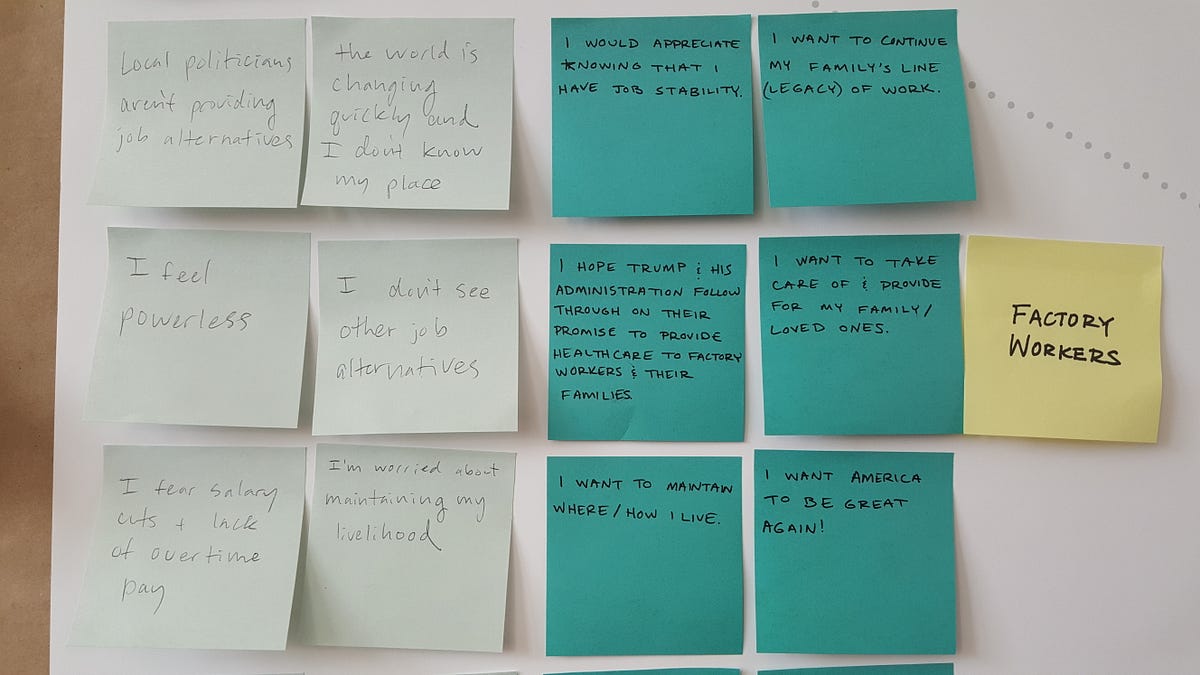 Local politicians
aren't providing
job alternatives
the world is
changing
quickly and
I don't know
my place
I WOULD APPRECIATE
KNOWING THAT I
HAVE JOB STABILITY.
I WANT TO CONTINUE
MY FAMILY'S LINE
(LEGACY) OF WORK.
I feel
powerless
I don't see
other job
alternatives
I HOPE TRUMP & HIS
ADMINISTRATION FOLLOW
THROUGH ON THEIR
PROMISE TO PROVIDE
HEALTHCARE TO FACTORY
WORKERS & THEIR
FAMILIES.
I WANT TO TAKE
CARE OF & PROVIDE
FOR MY FAMILY/
LOVED ONES.
FACTORY
WORKERS
I fear salary
cuts + lack
of overtime
pay
I'm worried about
maintaining my
livelihood
I WANT TO MAINTAIN
WHERE/HOW I LIVE.
I WANT AMERICA
TO BE GREAT
AGAIN!